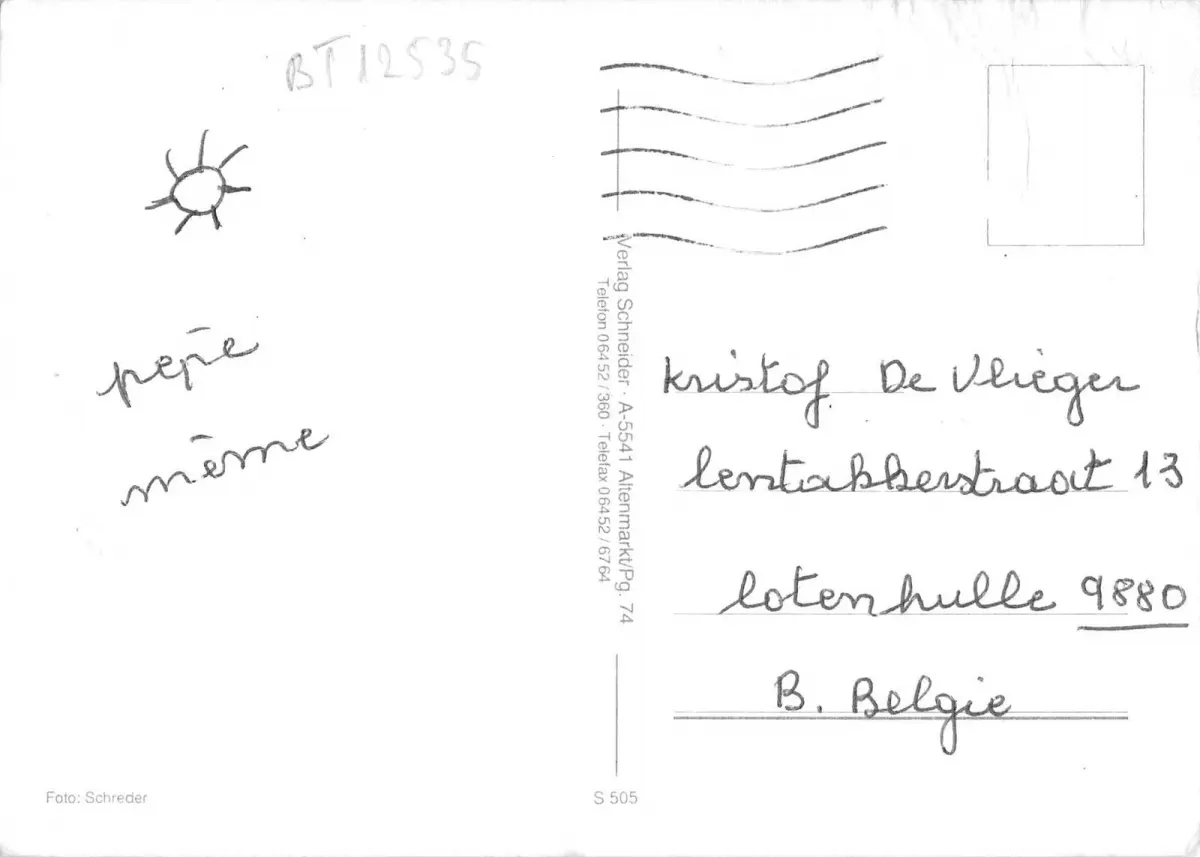 BT12535
pepe
même
Verlag Schneider · A-5541 Altenmarkt/Pg. 74
Telefon 06452/360 · Telefax 06452/6764
Kristof De Vlieger
lentakkerstraat 13
lotenhulle 9880
B. Belgie
Foto: Schreder
S 505